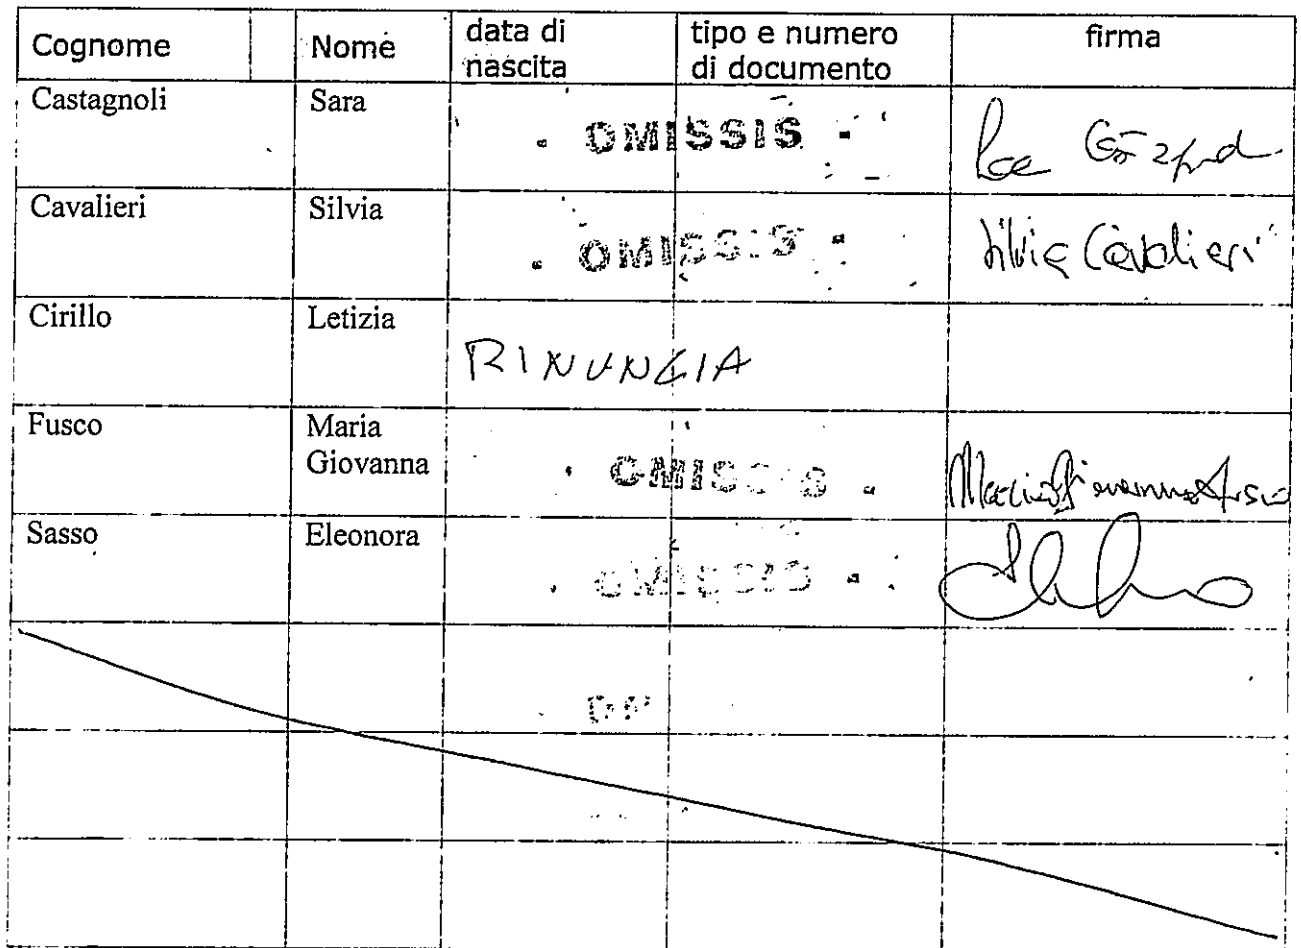 Cognome Nome data di nascita tipo e numero di documento firma
Castagnoli Sara . OMISSIS -
Cavalieri Silvia . OMISSIS - Silvia Cavalieri
Cirillo Letizia RINUNCIA
Fusco Maria Giovanna . OMISSIS . Maria Giovanna Fusco
Sasso Eleonora . OMISSIS -